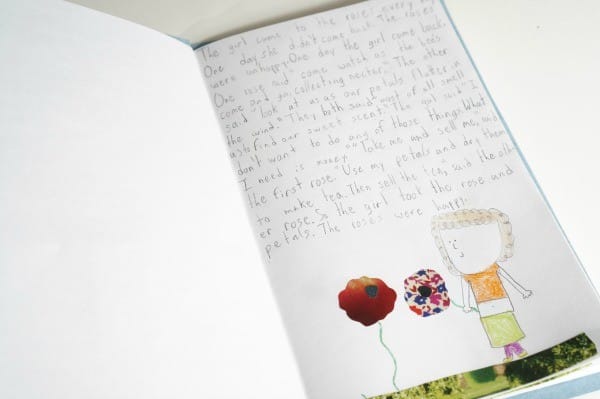 The girl came to the roses every my
One day she didn't come back. The roses
were unhappy. One day the girl came back.
One rose said "come watch us the bees
come and go, collecting nectar." The other
said "look at us as our petals flutter in
the wind." They both said, "must of all smell
us to find our sweet scent." The girl said "I
don't want to do any of those things. What
I need is money." "Take me and sell me," said
the first rose. "Use my petals and dry them
to make tea. Then sell the tea," said the oth
er rose. So the girl took the rose and
petals. The roses were happy.